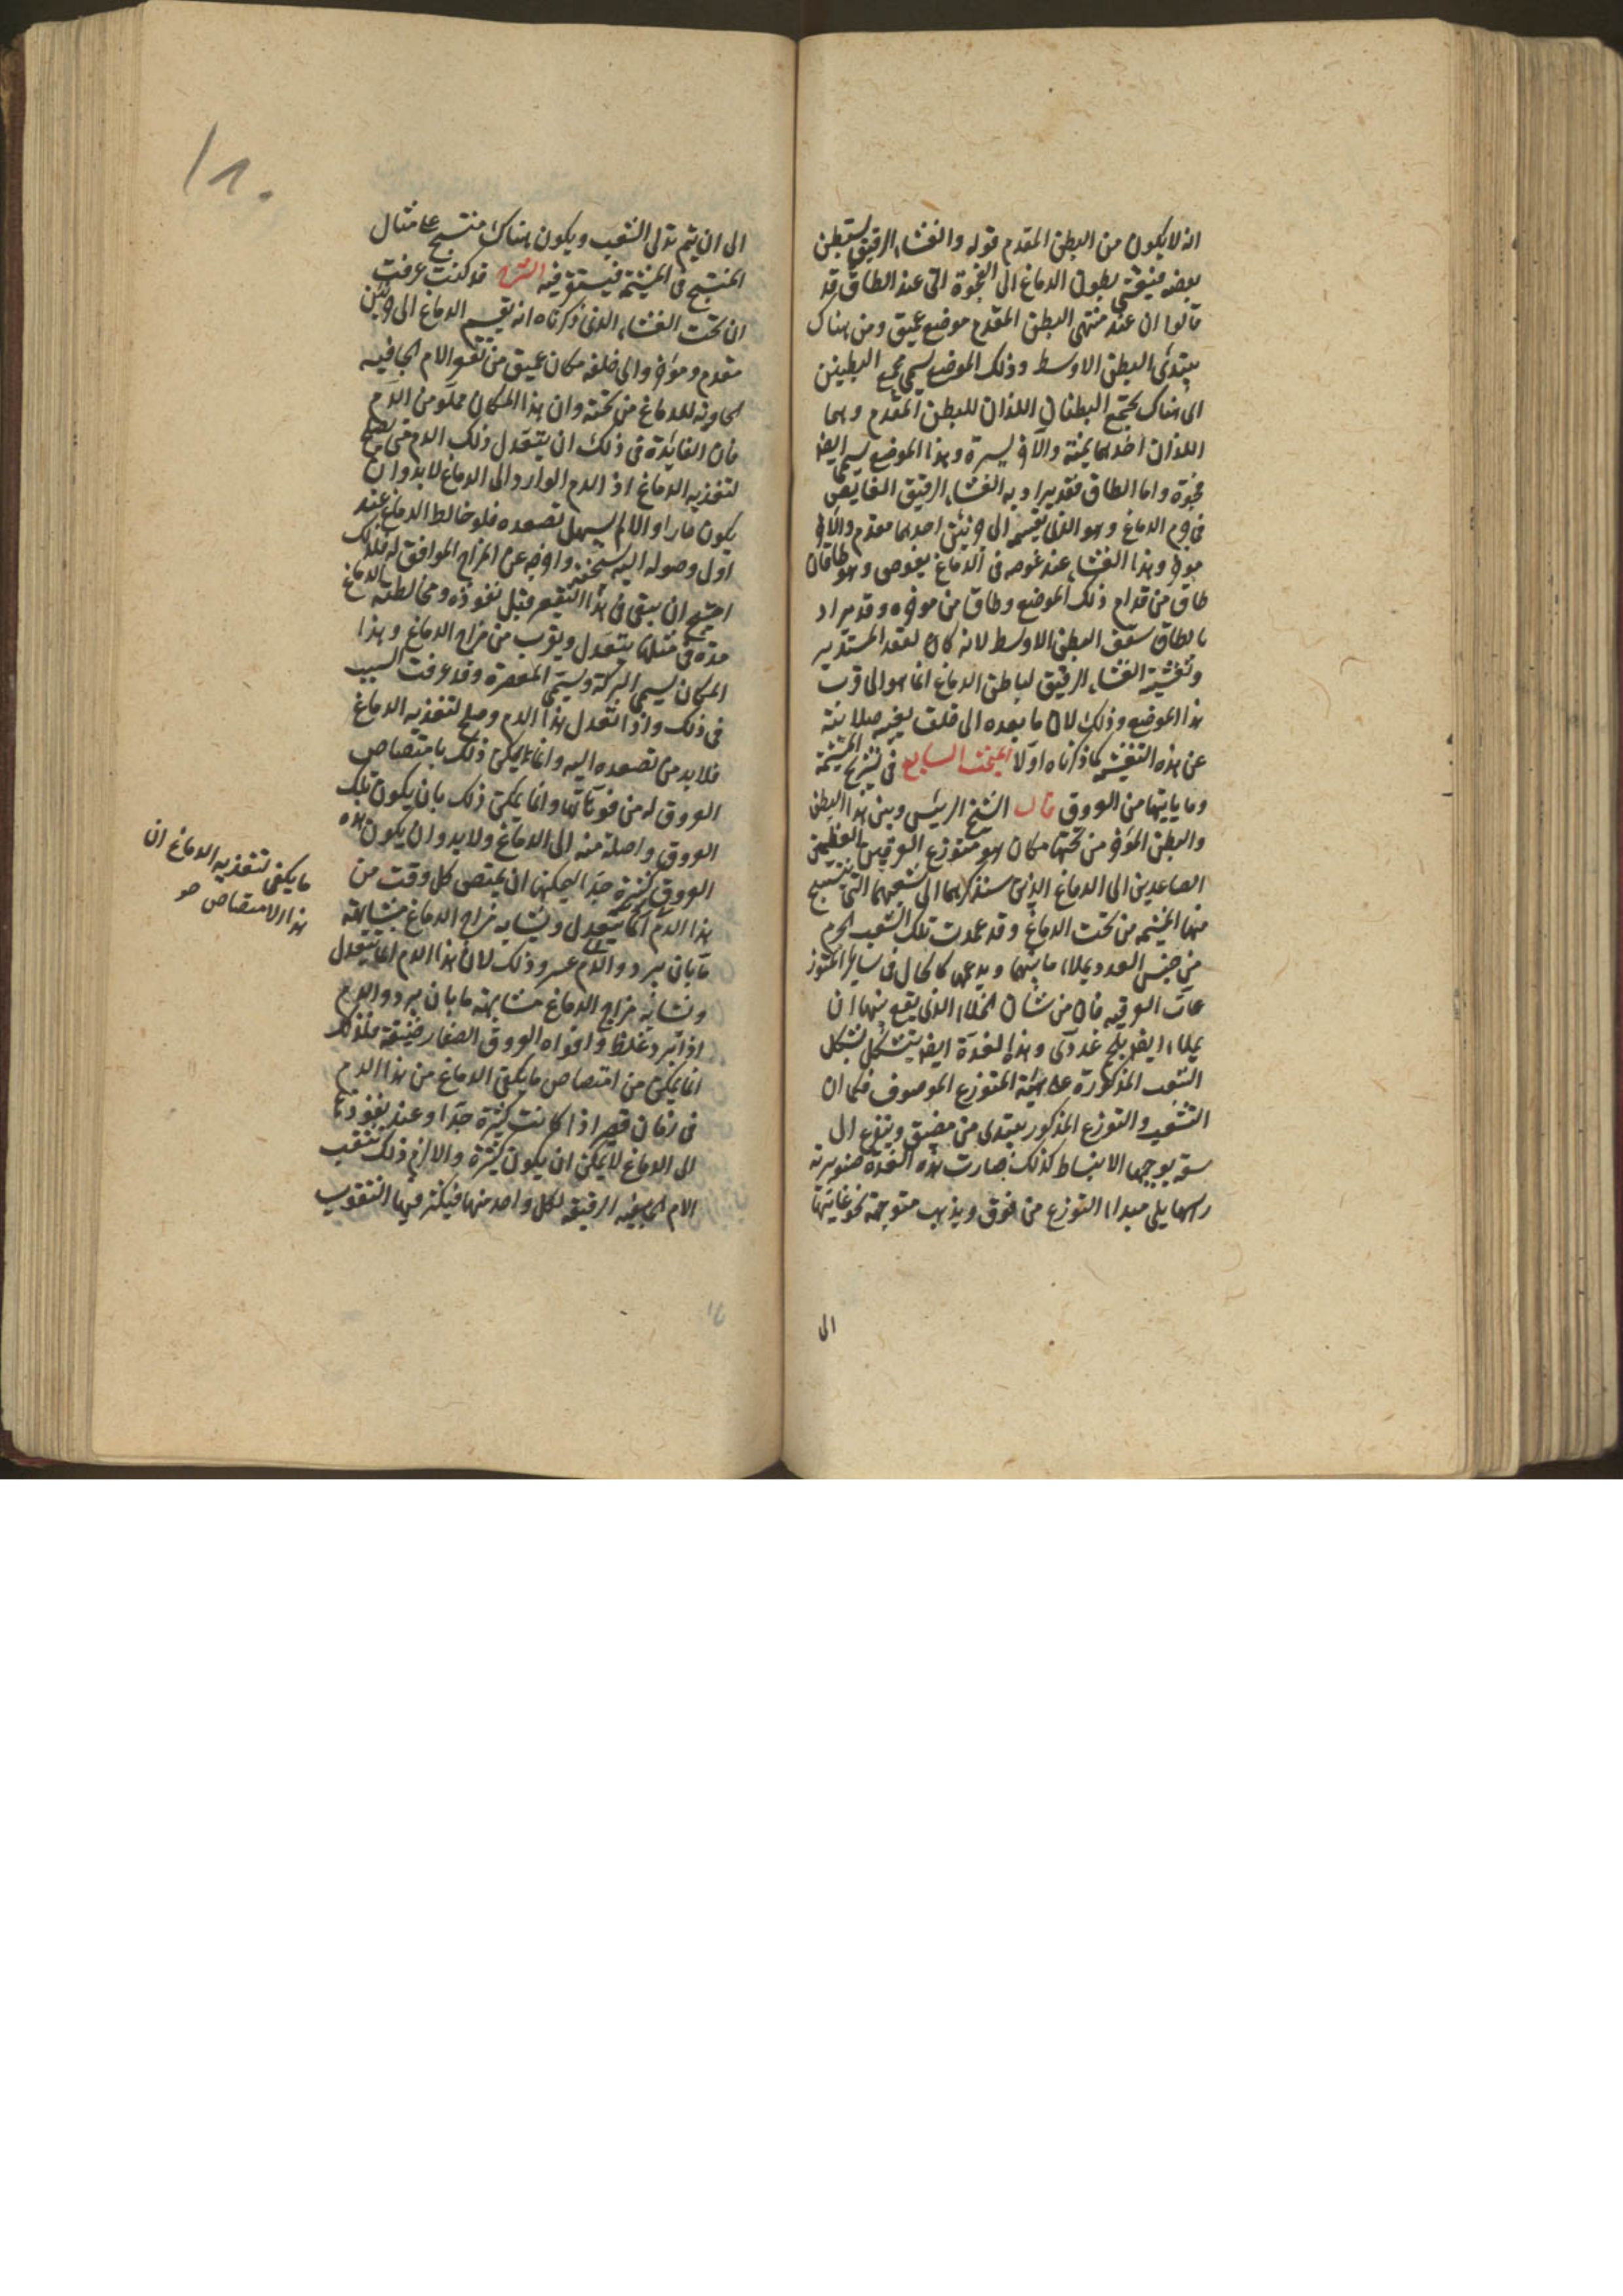 انه لا يكون من البطن المقدم قوله والغشاء الرقيق يستبطن
بعضه فيغشى بطون الدماغ الى الفجوة التى عند الطاق قد
قالوا ان عند منتهى البطن المقدم موضع عميق ومن هناك
يبتدئ البطن الاوسط وذلك الموضع يسمى مجمع البطينين
اى هناك يجتمع البطنان اللذان للبطن المقدم وهما
اللذان احدهما يمنة والآخر يسرة وهذا الموضع يسمى ايضا
فجوة واما الطاق فقد يراد به الغشاء الرقيق الغايص
فى جرم الدماغ وهو الذى يقسمه الى جزئين احدهما مقدم والآخر
موخر وهذا الغشاء عند غوصه فى الدماغ يغوص وهو طاقان
طاق من قدام ذلك الموضع وطاق من موخره وقد يراد
بالطاق سقف البطن الاوسط لانه كان لعقد المستدير
وتغشية الغشاء الرقيق لباطن الدماغ انما هو الى قرب
هذا الموضع وذلك لان ما بعده الى خلف يغنيه صلابته
عن هذه التغشية كما ذكرناه اولا المبحث السابع فى تشريح المشيمة
وما ياتيها من العروق قال الشيخ الرئيس وبين هذا البطن
والبطن الموخر من تحتهما مكان هو متوزع العرقين العظيمين
الصاعدين الى الدماغ الذين سنذكرهما الى شعبهما التى تنتسج
منها المشيمه من تحت الدماغ وقد عمدت تلك الشعب بجرم
من جنس الغدد يملاء ما بينها ويدعمها كالحال فى ساير المتوز
عات العرقيه فان من شان الخلاء الذى يقع بينها ان
يملاء ايضا بلحم غددى وهذه الغدة ايضا يتشكل بشكل
الشعب المذكورة على هيئة المتوزع الموصوف فكما ان
التشعب والتوزع المذكور يبتدى من مضيق ويتفرع الى
سعة يوجبها الانبساط كذلك صارت هذه الغدة صنوبرية
راسها يلى مبداء التوزع من فوق ويذهب متوجهة نحو غايتها
الى
الى ان يتم تدلى الشعب ويكون هناك منتسج على مثال
المنتسج فى المشيمة فيستقر فيه الشرح قد كنت عرفت
ان تحت الغشاء الذى ذكرناه انه يقسم الدماغ الى جزئين
مقدم وموخر والى خلفه مكان عميق من تقعر الام الجافيه
الحاوية للدماغ من تحته وان هذا المكان مملو من الدم
فان الفايدة فى ذلك ان يتعدل ذلك الدم حتى يصلح
لتغذيه الدماغ اذ الدم الوارد الى الدماغ لا بد وان
يكون حارا والا لم يسهل تصعده فلو خالط الدماغ عند
اول وصوله اليه سخنه واخرجه عن المزاج الموافق له فلذلك
احتيج ان يبقى فى هذا التقعير قبل نفوذه ومخالطته بالدماغ
مدة فى مثلها يتعدل ويقرب من مزاج الدماغ وهذا
المكان يسمى البركة ويسمى المعصرة وقد عرفت السبب
فى ذلك واذا تعدل هذا الدم وصلح لتغذيه الدماغ
فلا بد من تصعده اليه وانما يمكن ذلك بامتصاص
العروق له من فوهاتها وانما يمكن ذلك بان يكون تلك
العروق واصلة منه الى الدماغ ولا بد وان يكون هذه
العروق كثيرة جدا ليمكنها ان يمتص كل وقت من
هذا الدم انما يتعدل ويشابه مزاج الدماغ مشابهة
ما بان يبرد والدم عسر وذلك لان هذا الدم انما يتعدل
وتشابه مزاج الدماغ مشابهته ما بان يبرد والدم
اذا تبرد غلظ وافواه العروق الصغار ضيقة فلذلك
انما يمكن من امتصاص ما يكفى الدماغ من هذا الدم
فى زمان قصير اذا كانت كثيرة جدا وعند نفوذها
الى الدماغ لا يمكن ان يكون كثيرة والا لزم ذلك تثقب
الام الجافيه الرقيقه لكل واحد منها فيكثر فيها الثقوب
ما يكفى لتغذيه الدماغ ان
هذا الامتصاص هو